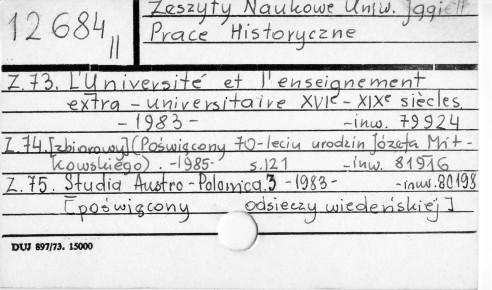 Zeszyty Naukowe Uniw. Jagiell
12 684 II
Prace Historyczne
Z.73. L'Université et l'enseignement
extra-universitaire XVIe-XIXe siècles.
-1983- -inw. 79924
Z.74. [zbiorowy] (Poświęcony 70-leciu urodzin Józefa Mit-
kowskiego). -1985- s.121 -inw. 81916
Z.75. Studia Austro-Polonica.3 -1983- -inw. 80198
[poświęcony odsieczy wiedeńskiej]
DUJ 897/73. 15000